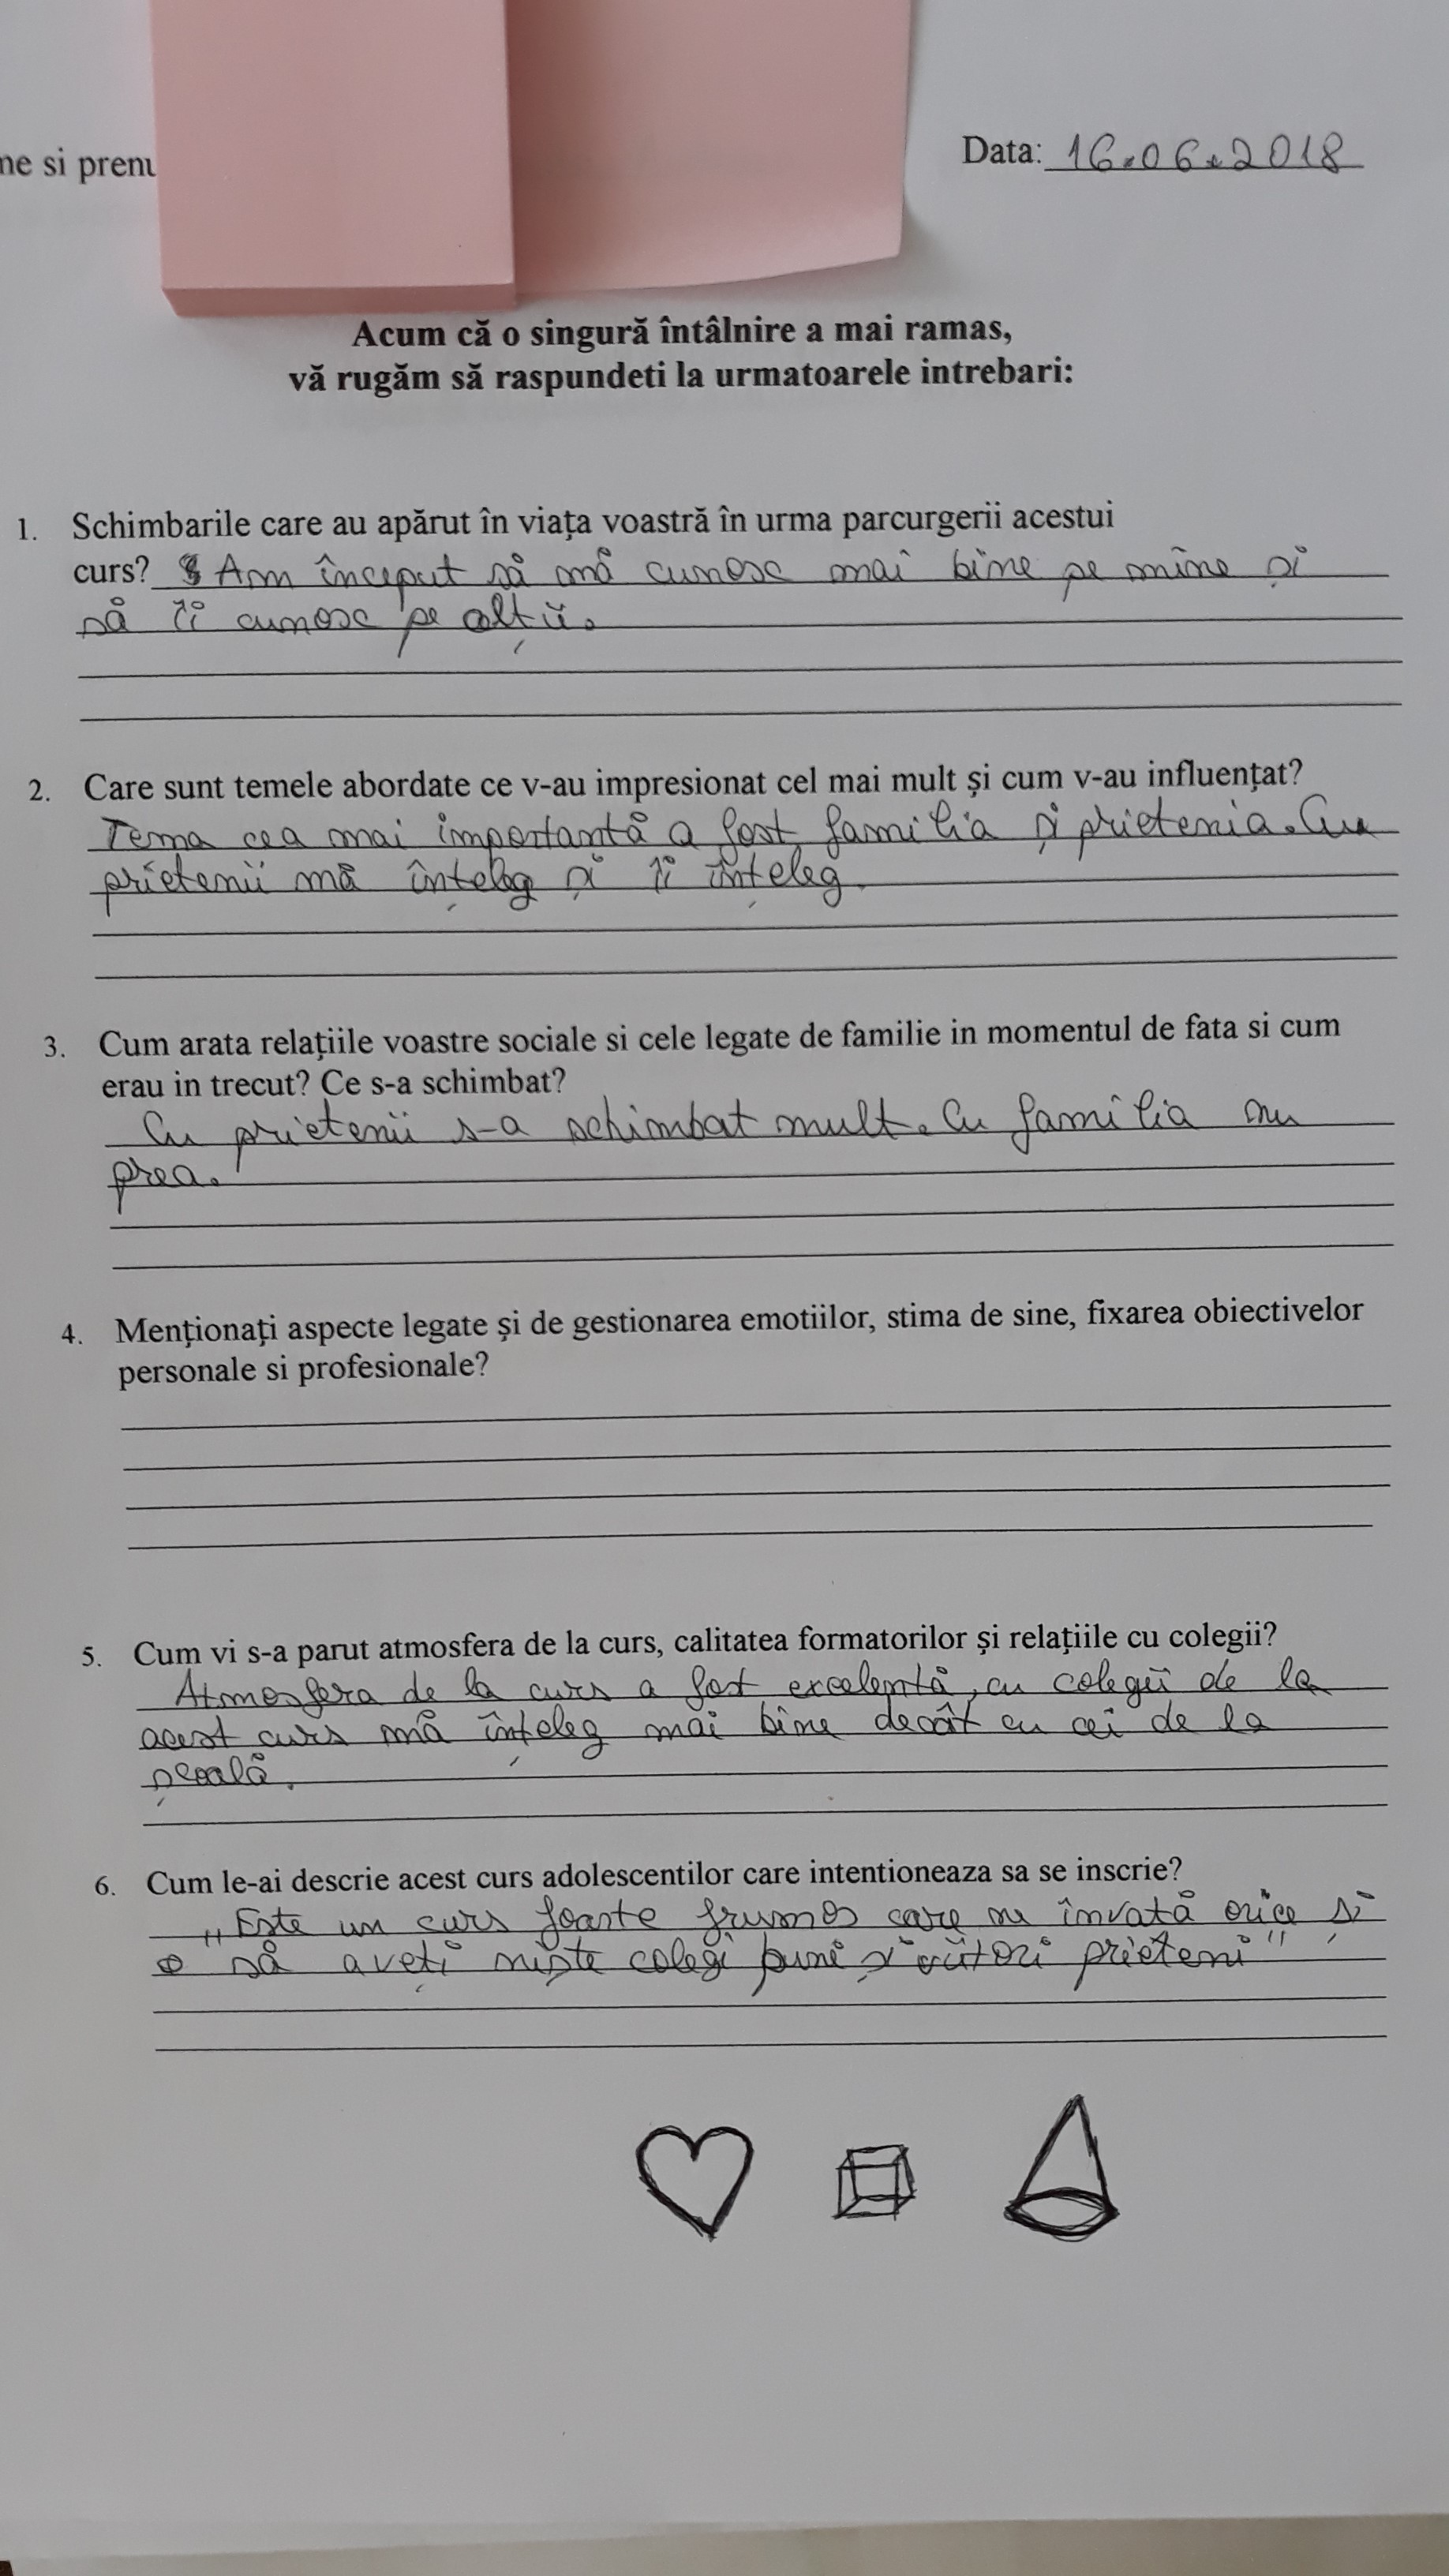 ne si prenu
Data: 16.06.2018
Acum că o singură întâlnire a mai ramas,
vă rugăm să raspundeti la urmatoarele intrebari:
1. Schimbarile care au apărut în viața voastră în urma parcurgerii acestui
curs? Am început să mă cunosc mai bine pe mine și
să îi cunosc pe alții.
2. Care sunt temele abordate ce v-au impresionat cel mai mult și cum v-au influențat?
Tema cea mai importantă a fost familia și prietenia. Cu
prietenii mă înțeleg și îi înțeleg.
3. Cum arata relațiile voastre sociale si cele legate de familie in momentul de fata si cum
erau in trecut? Ce s-a schimbat?
Cu prietenii s-a schimbat mult. Cu familia nu
prea.
4. Menționați aspecte legate și de gestionarea emotiilor, stima de sine, fixarea obiectivelor
personale si profesionale?
5. Cum vi s-a parut atmosfera de la curs, calitatea formatorilor și relațiile cu colegii?
Atmosfera de la curs a fost excelentă, cu colegii de la
acest curs mă înțeleg mai bine decât cu cei de la
școală.
6. Cum le-ai descrie acest curs adolescentilor care intentioneaza sa se inscrie?
„Este un curs foarte frumos care ne învată orice și
o să aveți niște colegi buni și viitori prieteni"